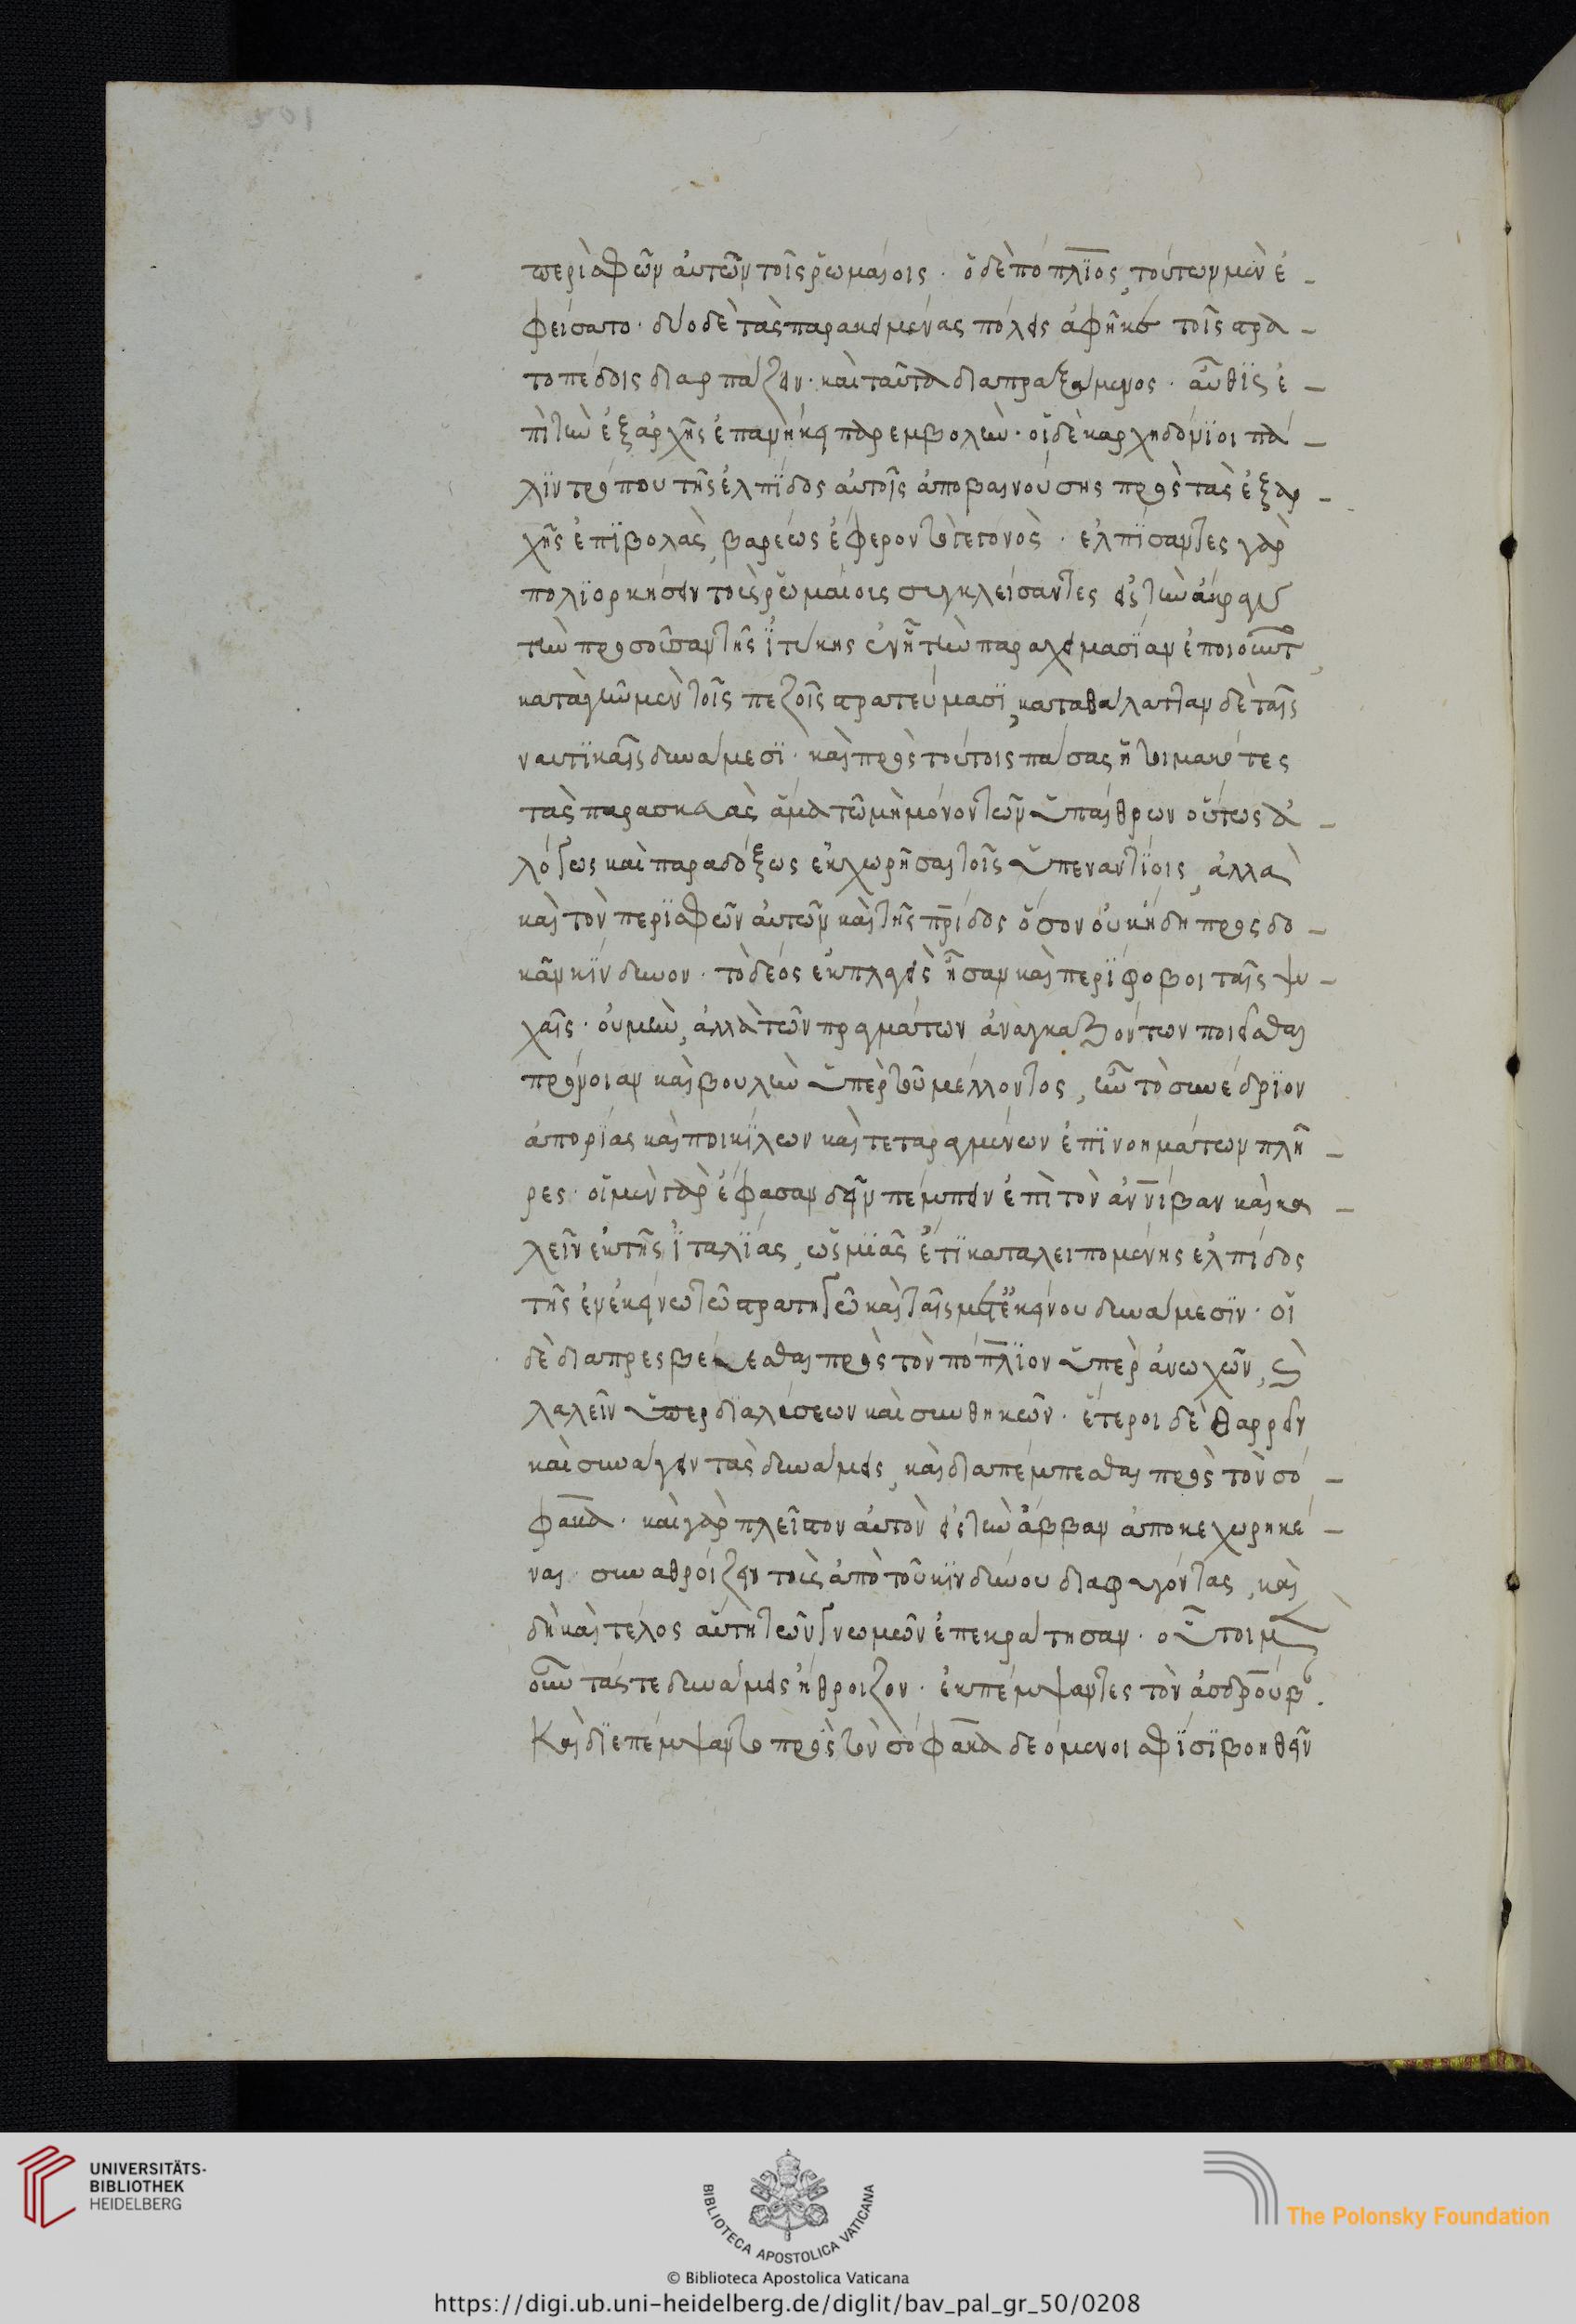 περὶ σφῶν αὐτῶν τοῖς ῥωμαίοις. ὁ δὲ πόπλϊος, τούτων μὲν ἐ
φείσατο. δύο δὲ τὰς παρακειμένας πόλεις ἀφῆκε τοῖς στρα-
τοπέδοις διαρπάζειν. καὶ ταῦτα διαπραξάμενος. αὖθϊς ἐ-
πὶ τὴν ἐξ ἀρχῆς ἐπανῆκε παρεμβολὴν. οἱ δὲ καρχηδόνϊοι πά-
λϊν τρόπου τῆς ἐλπΐδος αὐτοῖς ἀποβαινούσης πρὸς τὰς ἐξ ἀρ-
χῆς ἐπϊβολὰς, βαρέως ἔφερον τὸ γεγονὸς. ἐλπΐσαντες γὰρ
πολϊορκήσειν τοὺς ῥωμαίοις συγκλείσαντες εἰς τὴν ἄκραν
τὴν προσοῦσαν τῆς ἰτύκης ἐν ᾗ τὴν παραχειμασΐαν ἐποιοῦντο
κατὰ γῆν μὲν τοῖς πεζοῖς στρατεύμασϊ, κατὰ θάλατταν δὲ ταῖς
ναυτϊκαῖς δυνάμεσϊ. καὶ πρὸς τούτοις πάσας ἡτοιμακότες
τὰς παρασκευὰς ἅμα τῷ μὴ μόνον τῶν ὑπαίθρων οὕτως ἀ-
λόγως καὶ παραδόξως ἐκχωρῆσαι τοῖς ὑπεναντΐοις, ἀλλὰ
καὶ τὸν περὶ σφῶν αὐτῶν καὶ τῆς πρΐδος ὅσον οὐκ ἤδη προσδο-
κᾶν κΐνδυνον. τὸ δέος ἐκπλαγεῖς ἦσαν καὶ περΐφοβοι ταῖς ψυ-
χαῖς. οὐ μὴν, ἀλλὰ τῶν πραγμάτων ἀναγκαζόντων ποιεῖσθαι
πρόνοιαν καὶ βουλὴν ὑπὲρ τοῦ μέλλοντος, ἦν τὸ συνέδρϊον
ἀπορΐας καὶ ποικΐλων καὶ τεταραγμένων ἐπϊνοημάτων πλῆ-
ρες. οἱ μὲν γὰρ ἔφασαν δεῖν πέμπειν ἐπὶ τὸν ἀννΐβαν καὶ κα-
λεῖν ἐκ τῆς ἰταλΐας, ὡς μϊᾶς ἔτϊ καταλειπομένης ἐλπΐδος
τῆς ἐν ἐκείνῳ τῷ στρατηγῷ καὶ ταῖς μετ' ἐκείνου δυνάμεσϊν. οἱ
δὲ διαπρεσβεύεσθαι πρὸς τὸν πόπλϊον ὑπὲρ ἀνωχῶν, καὶ
λαλεῖν ὑπὲρ διαλύσεων καὶ συνθηκῶν. ἕτεροι δὲ θαρρεῖν
καὶ συνάγειν τὰς δυνάμεις, καὶ διαπέμπεσθαι πρὸς τὸν σό-
φακα. καὶ γὰρ πλεῖστον αὐτὸν εἰς τὴν ἄββαν ἀποκεχωρηκέ-
ναι. συναθροίζειν τοὺς ἀπὸ τοῦ κινδύνου διαφυγόντας, καὶ
δὴ καὶ τέλος αὕτη τῶν γνωμῶν ἐπεκράτησαν. οὗτοι μὲν
οὖν τάς τε δυνάμεις ἤθροιζον. ἐκπέμψαντες τὸν ἀσδρούβ.
Καὶ δϊεπέμψαντο πρὸς τὸν σόφακα δεόμενοι σφΐσϊ βοηθεῖν
UNIVERSITÄTS-
BIBLIOTHEK
HEIDELBERG
BIBLIOTECA APOSTOLICA VATICANA
The Polonsky Foundation
© Biblioteca Apostolica Vaticana
https://digi.ub.uni-heidelberg.de/diglit/bav_pal_gr_50/0208